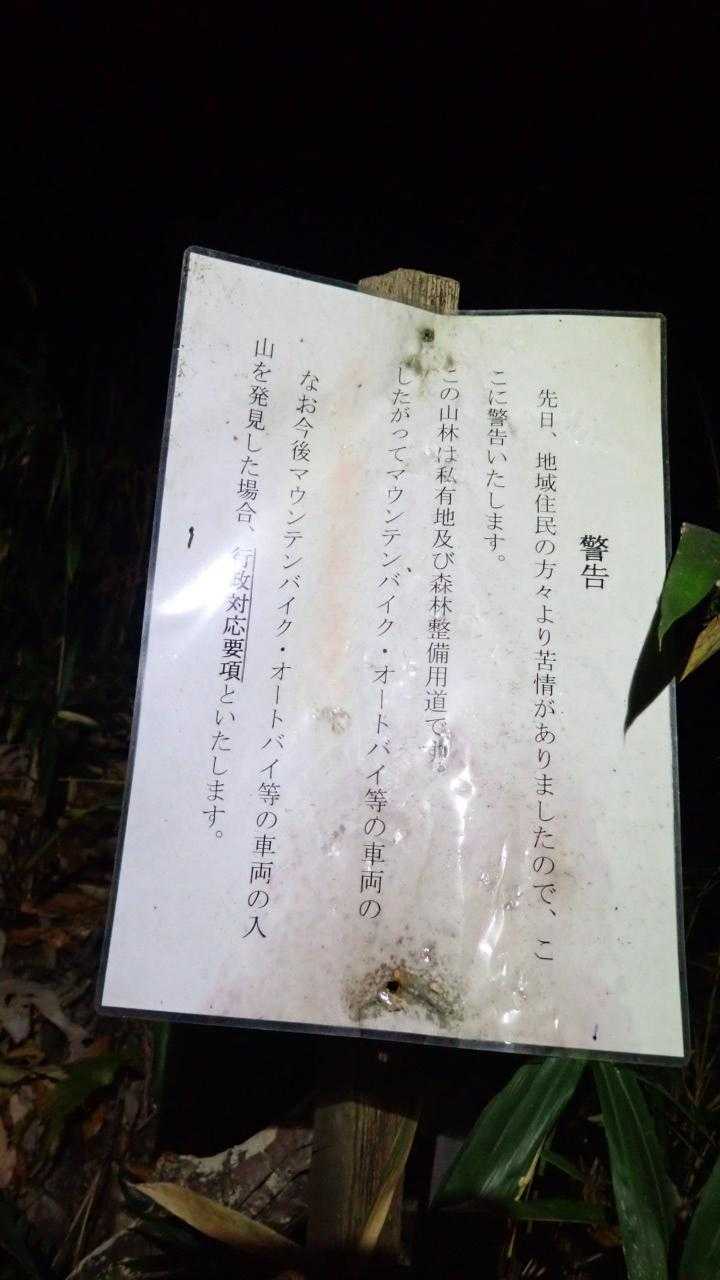 警告
先日、地域住民の方々より苦情がありましたので、こ
こに警告いたします。
この山林は私有地及び森林整備用道です。
したがってマウンテンバイク・オートバイ等の車両の
なお今後マウンテンバイク・オートバイ等の車両の入
山を発見した場合、行政対応要項といたします。